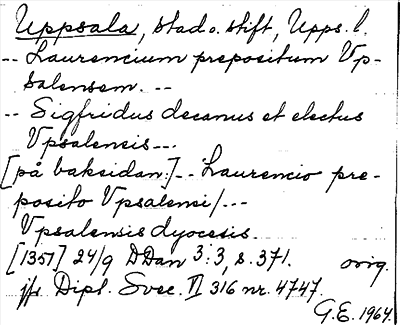 Uppsala, stad o. stift, Upps. l.
-- Laurencium prepositum Vp-
salensem. --
-- Sigfridus decanus et electus
Vpsalensis --.
[på baksidan:] -- Laurencio pre-
posito Vpsalensi/ ---
Vpsalensis dyocesis.
[1351] 24/9 DDan 3:3, s. 371. orig.
jfr Dipl. Svec. VI 316 nr. 4747.
G.E. 1964.